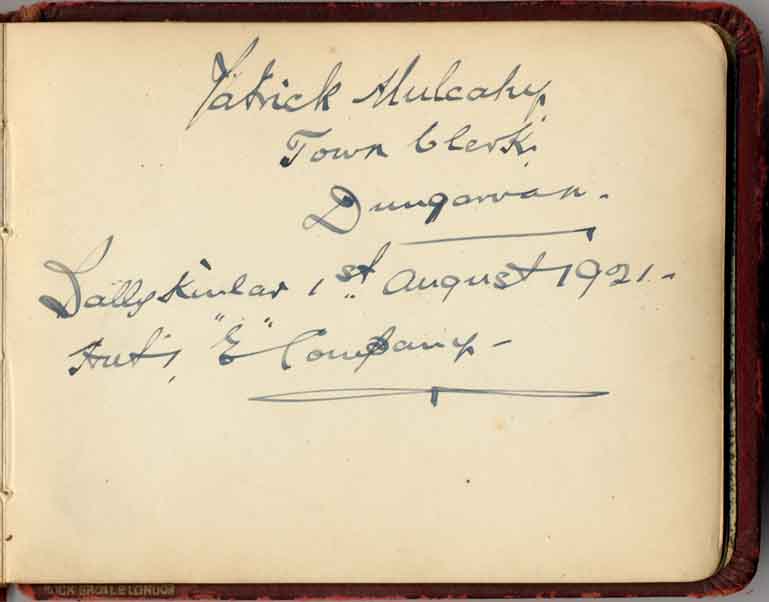 Patrick Mulcahy,
Town Clerk,
Dungarvan.
Ballykinlar 1st August 1921.
Hut 1, "E" Company.